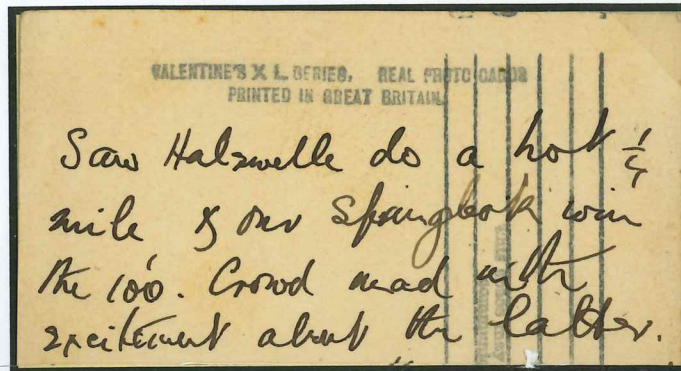 VALENTINE'S X L SERIES. REAL PHOTO CARDS
PRINTED IN GREAT BRITAIN.
Saw Halswelle do a hot 1/4
mile & our Springbok win
the 100. Crowd mad with
excitement about the latter.